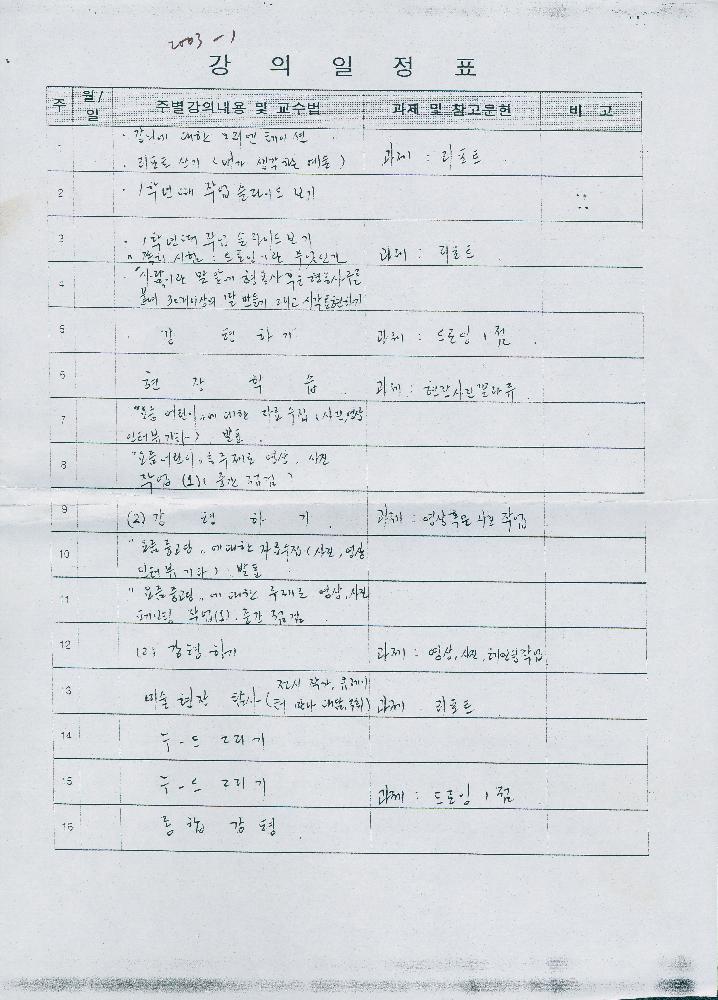 2003-1
강 의 일 정 표
주 월/일 주별강의내용 및 교수법 과제 및 참고문헌 비 고
· 강의에 대한 오리엔테이션
· 리포트 쓰기 (내가 생각하는 예술) 과제 : 리포트
2 · 1학년때 작업 슬라이드 보기
3 · 1학년때 작업 슬라이드 보기
시험 : 드로잉이란 무엇인가 과제 : 리포트
4 "사람"이란 말 앞에 형용사
30개이상의 말 만들기 그리고 시각표현하기
5 강 평 하 기 과제 : 드로잉 1점
6 현 장 학 습 과제 : 현장사진꼴라쥬
7 "요즘 어린이"에 대한 자료수집 (사진, 영상
인터뷰, 기타) 발표
8 "요즘어린이"를 주제로 영상, 사진
작업 (1) 중간점검
9 (2) 강 평 하 기 과제 : 영상혹은 사진 작업
10 "요즘중고딩"에 대한 자료수집 (사진, 영상
인터뷰, 기타) 발표
11 "요즘중고딩"에 대한 주제로 영상, 사진
페인팅 작업(1). 중간 점검
12 (2) 강평하기 과제 : 영상, 사진, 페인팅작업
13 미술 현장 답사 (전시 작가, 큐레이
터 만나 대담, 토의) 과제 : 리포트
14 누-드 그리기
15 누-드 그리기 과제 : 드로잉 1점
16 종합 강평